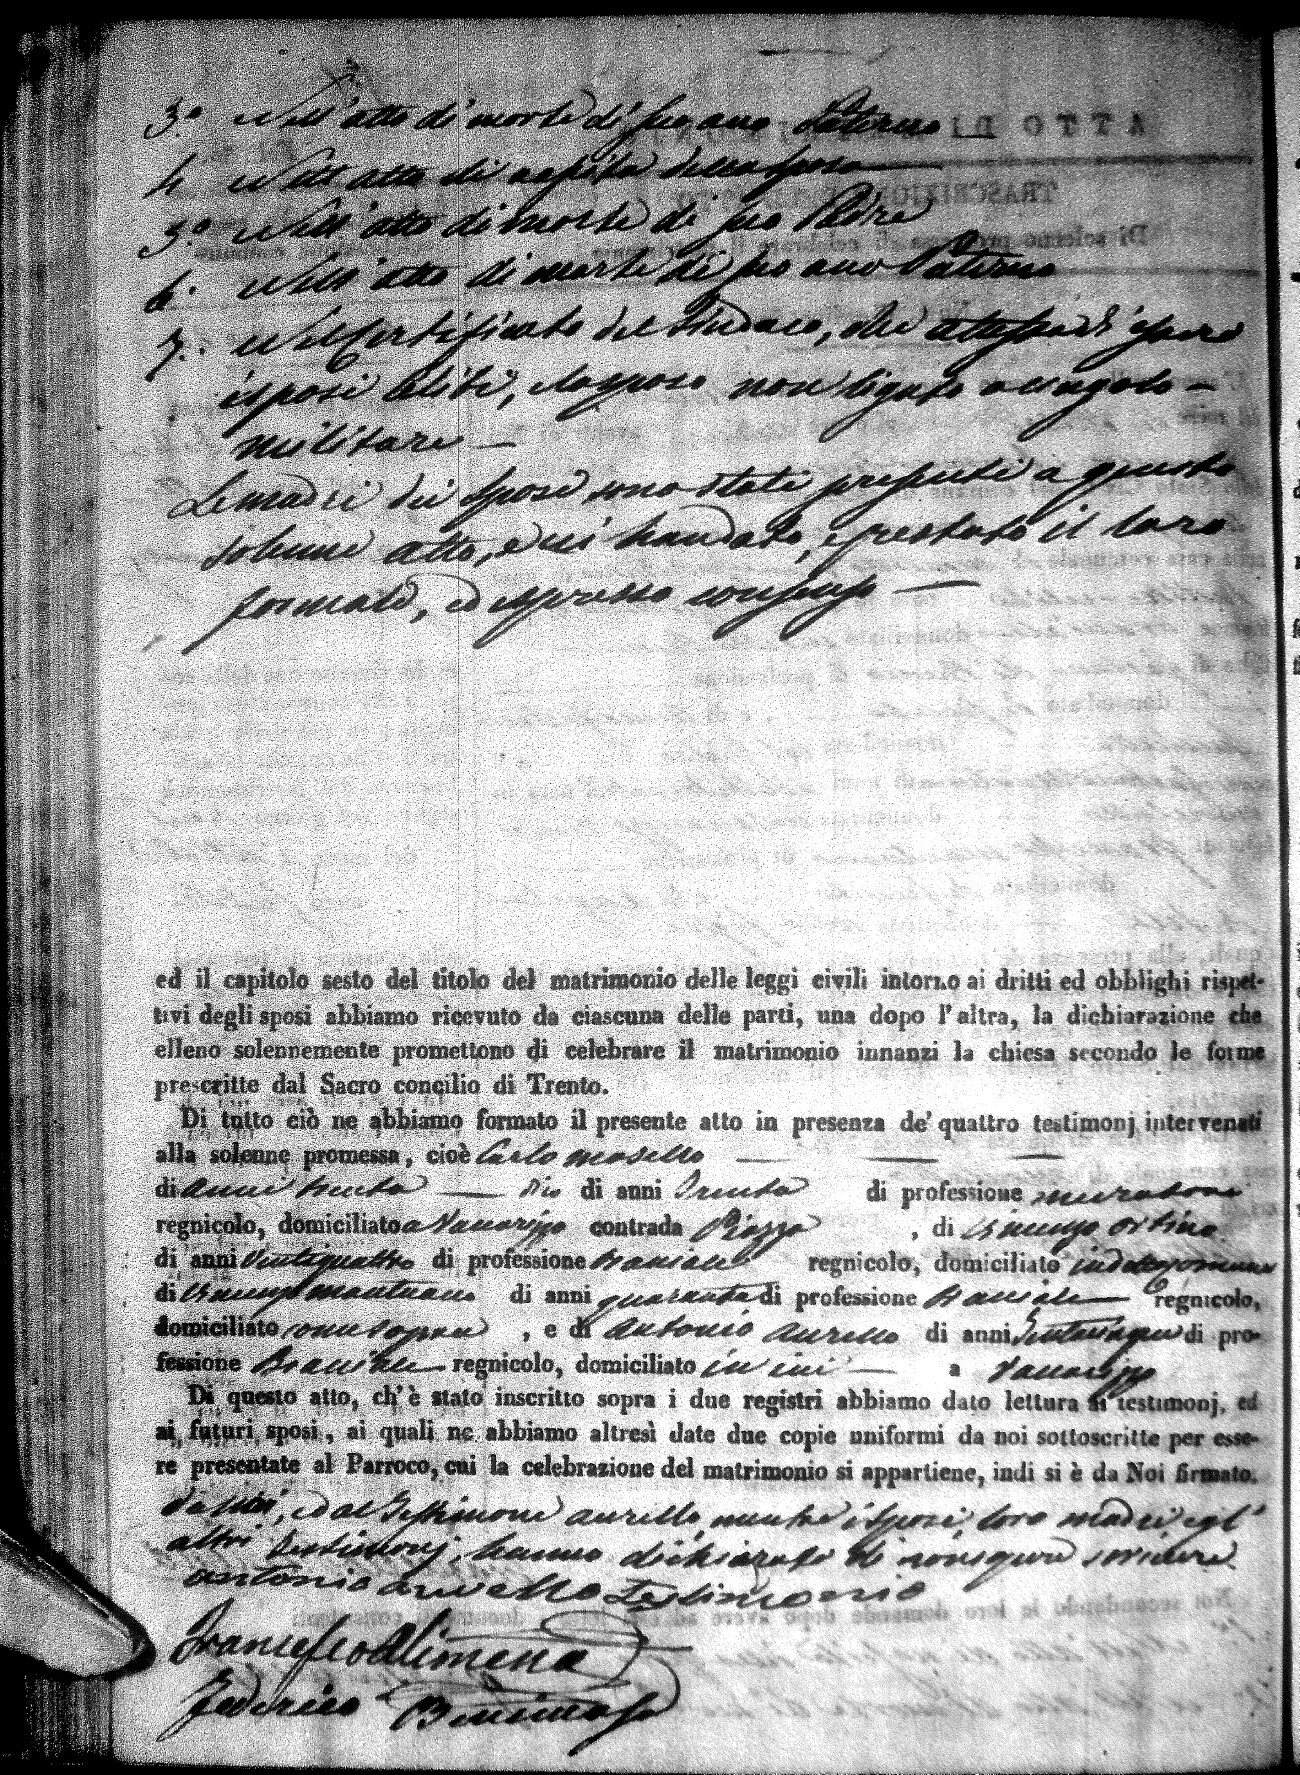 3.° Nell'atto di morte di suo avo Paterno
4. Nell'atto di nascita della sposa
5.° Nell'atto di morte di suo Padre
6. Nell'atto di morte di suo avo Paterno
7. Nel Certificato del Sindaco, che attesta d'essere
i sposi celibi, lo sposo non ligato a cingolo
militare
Le madri dei sposi sono state presenti a questo
solenne atto, e ci hanno dato, e prestato il loro
formale, ed espresso consenso
ed il capitolo sesto del titolo del matrimonio delle leggi civili intorno ai dritti ed obblighi rispet-
tivi degli sposi abbiamo ricevuto da ciascuna delle parti, una dopo l'altra, la dichiarazione che
elleno solennemente promettono di celebrare il matrimonio innanzi la chiesa secondo le forme
prescritte dal Sacro concilio di Trento.
Di tutto ciò ne abbiamo formato il presente atto in presenza de' quattro testimonj intervenuti
alla solenne promessa, cioè Carlo
di anni trenta di anni trenta di professione muratore
regnicolo, domiciliato a contrada Piazza , di Vincenzo Ortino
di anni ventiquattro di professione Bracciale regnicolo, domiciliato
di Vincenzo Mantuano di anni quaranta di professione Bracciale regnicolo,
domiciliato come sopra , e di Antonio Aurello di anni di pro-
fessione Bracciale regnicolo, domiciliato in a
Di questo atto, ch'è stato inscritto sopra i due registri abbiamo dato lettura ai testimonj, ed
ai futuri sposi, ai quali ne abbiamo altresì date due copie uniformi da noi sottoscritte per esse-
re presentate al Parroco, cui la celebrazione del matrimonio si appartiene, indi si è da Noi firmato.
ed al testimone Aurello, mentre i sposi, loro madri e gl'
altri testimonj, hanno dichiarato di non sapere scrivere
Antonio Aurello Testimonio
Francesco Alimena
Federico